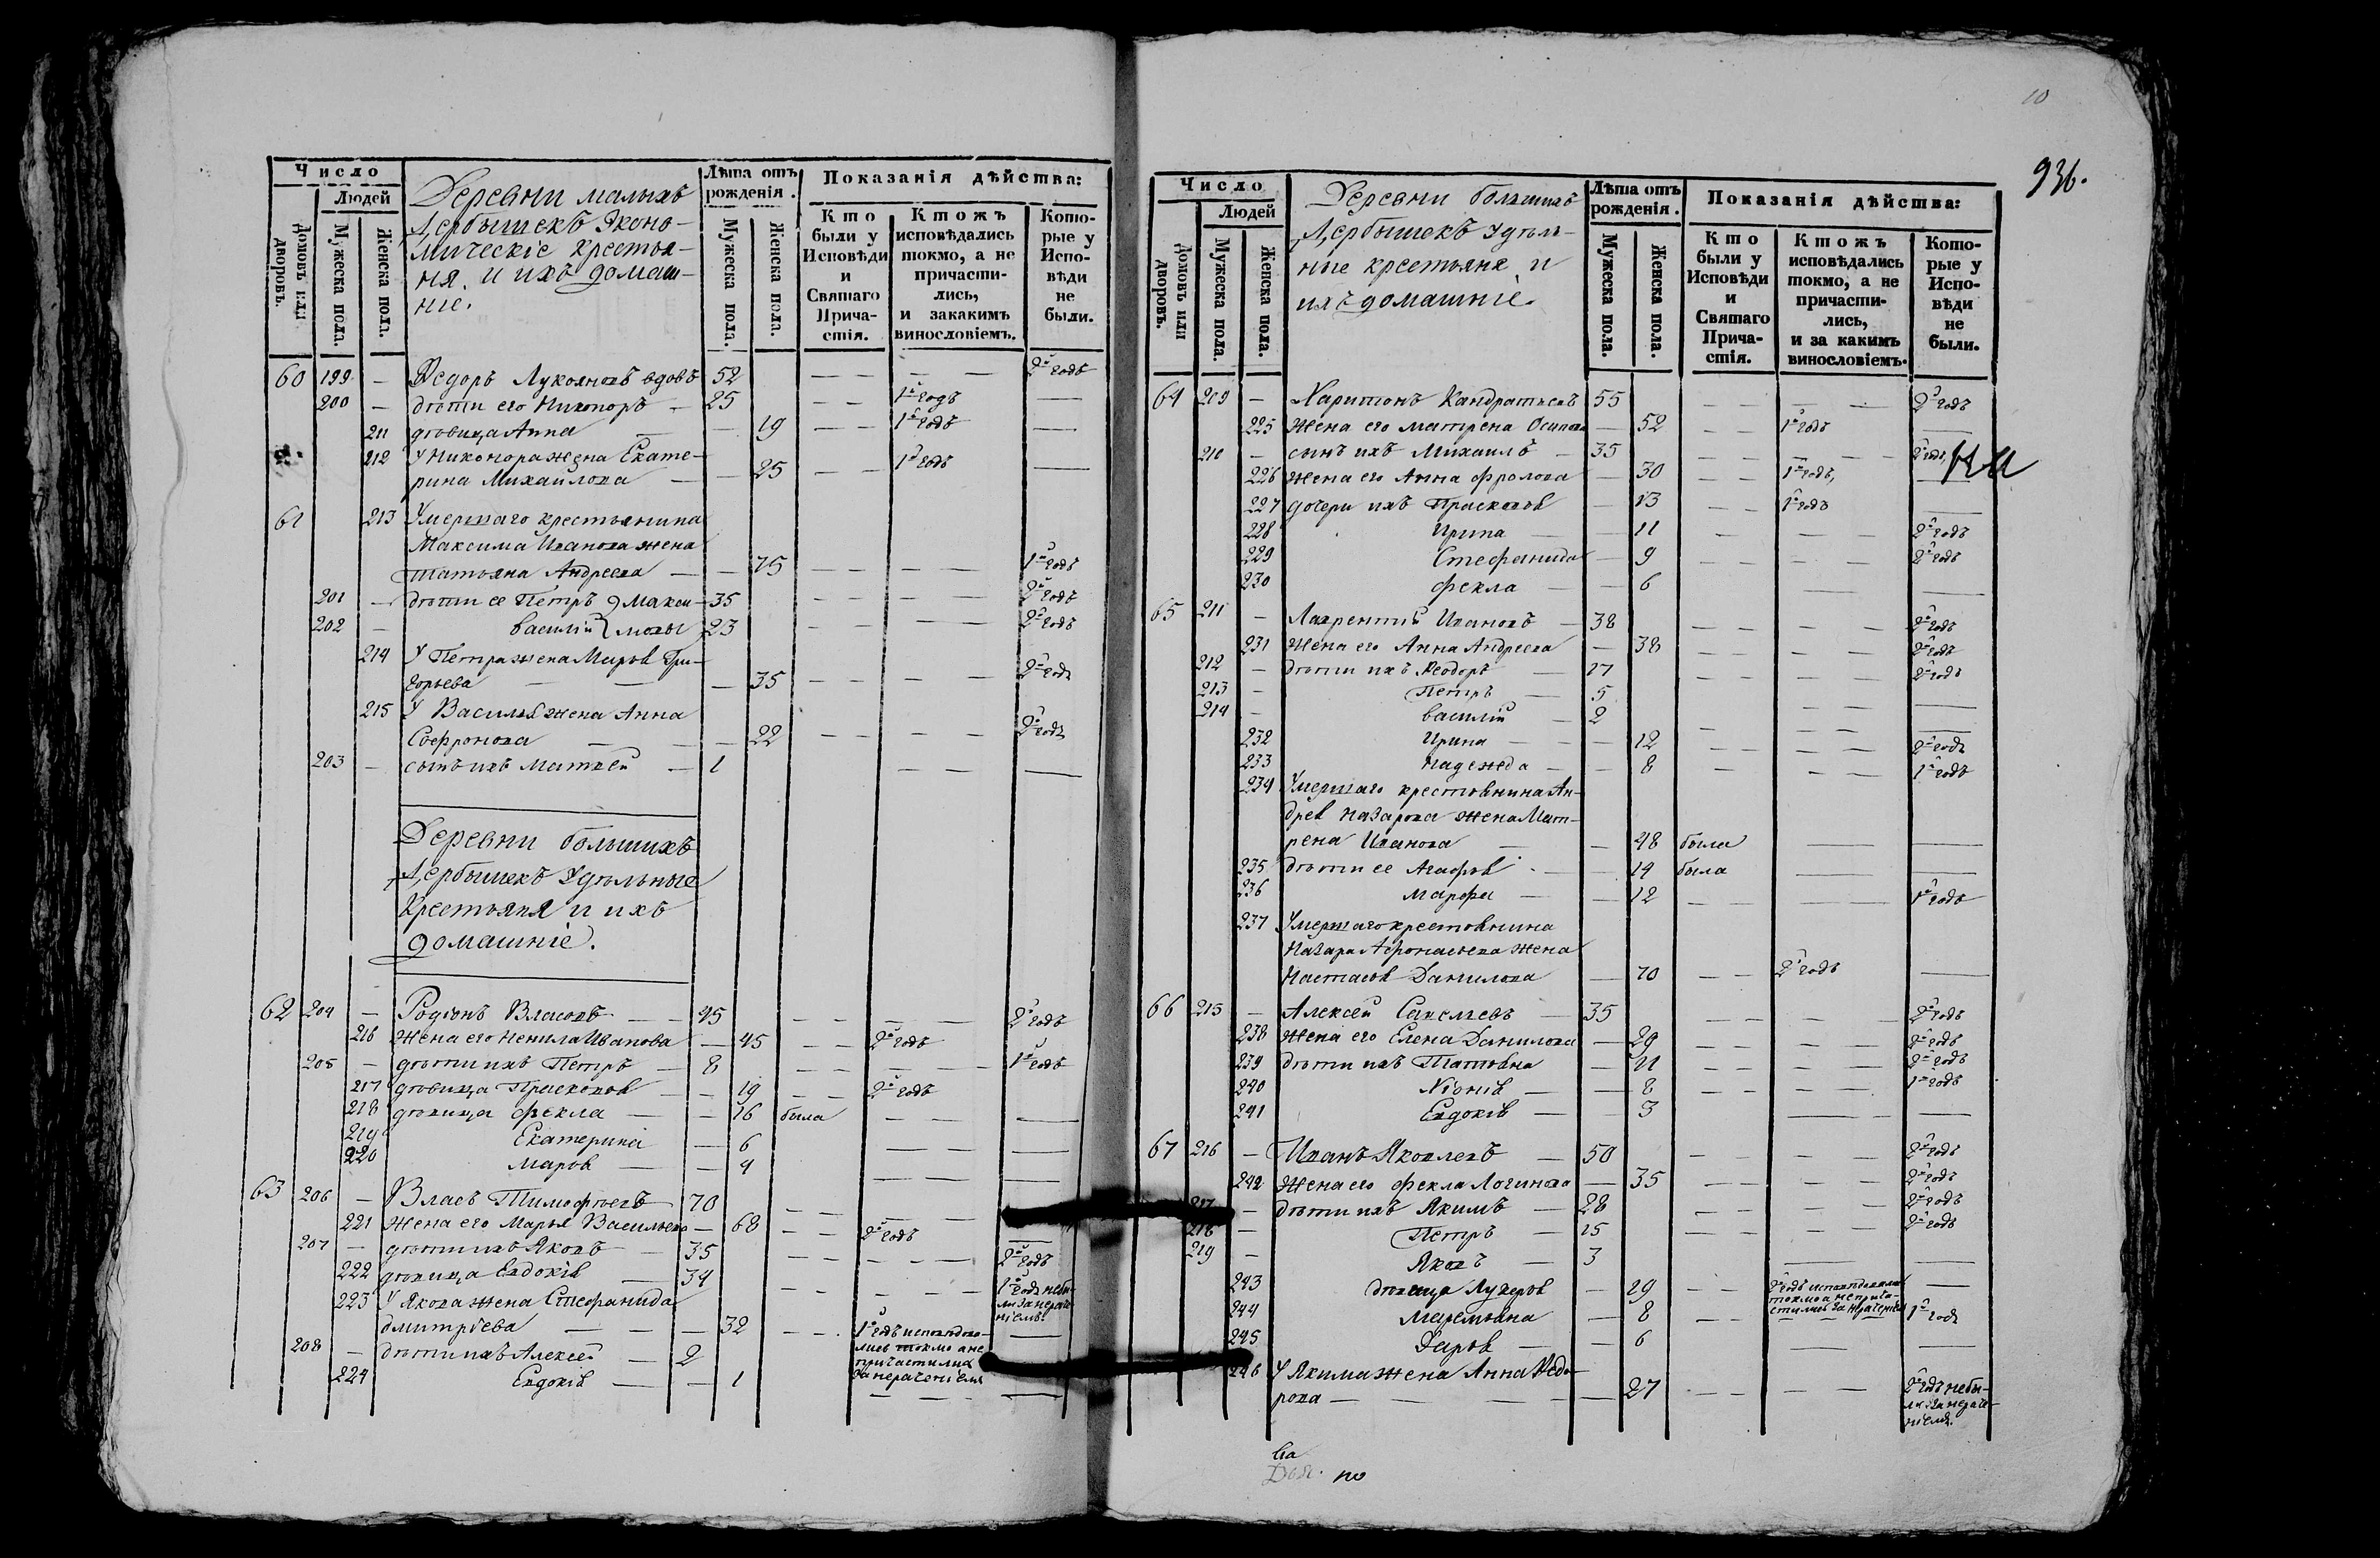 Число
Людей
Домовъ или дворовъ.
Мужеска пола.
Женска пола.
Деревни малыхъ
Дербышекъ Эконо-
мическіе крестья-
ня и ихъ домаш-
ніе.
Лѣта отъ рожденія.
Мужеска пола.
Женска пола.
Показанія дѣйства:
Кто были у Исповѣди и Святаго Прича-стія.
Ктожъ исповѣдались токмо, а не причасти-лись, и закакимъ винословіемъ.
Кото-рые у Испо-вѣди не были.
60 199 — Федоръ Лукояновъ вдовъ 52 — — — — 2й годъ
200 — дѣти его Никоноръ — 25 — — 1й годъ —
211 дѣвица Анна — — 19 — — 1й годъ —
212 У Никонора жена Екате-
рина Михайлова — — 25 — — 1й годъ —
61 213 Умершаго крестьянина
Максима Иванова жена
Татьяна Андреева — — 75 — — — — 1й годъ
201 — дѣти ее Петръ Макси- 35 — — — — 2й годъ
202 — Василій мовы 23 — — — — 2й годъ
214 У Петра жена Марья Гри-
горьева — — — 35 — — — — 2й годъ
215 У Василья жена Анна
Софронова — — — 22 — — — — 2й годъ
203 — сынъ ихъ Матвей — 1 — — —
Деревни большихъ
Дербышекъ Удѣльные
Крестьяня и ихъ
домашніе.
62 204 — Родіонъ Власовъ — — 45 — — — — 2й годъ
216 Жена его Ненила Иванова — 45 — — 2й годъ
205 — дѣти ихъ Петръ — 8 — — — — 1й годъ
217 дѣвица Прасковья — — 19 — — 2й годъ
218 дѣвица Фекла — — 16 была — — —
219 Екатерина — 6 — — —
220 Марья — — 4 — — —
63 206 — Власъ Тимофѣевъ 70 — — — —
221 Жена его Марья Васильева — 68 — — 2й годъ —
207 — дѣти ихъ Яковъ — 35 — — — — 2й годъ
222 дѣвица Евдокія — 34 — — — — 1й годъ небы-
ли за нераче-
ніемъ.
223 У Якова жена Стефанида
Дмитріева — — — 32 — — 1й годъ исповѣдова- —
лись токмо а не
причастились
за нераченіемъ
208 — дѣти ихъ Алексей — 2
224 Евдокія — — 1 — — —
10
936.
Число
Людей
Домовъ или дворовъ.
Мужеска пола.
Женска пола.
Деревни большихъ
Дербышекъ Удѣль-
ные крестьяня и
ихъ домашніе.
Лѣта отъ рожденія.
Мужеска пола.
Женска пола.
Показанія дѣйства:
Кто были у Исповѣди и Святаго Прича-стія.
Ктожъ исповѣдались токмо, а не причасти-лись, и за какимъ винословіемъ.
Кото-рые у Испо-вѣди не были.
64 209 — Харитонъ Кандратьевъ 55 — — — — 2й годъ
225 Жена его Матрена Осипова — 52 — — 1й годъ —
210 — сынъ ихъ Михаилъ — 35 — — — — 2й годъ
226 Жена его Анна Фролова — 30 — — 1й годъ —
227 дочери ихъ Прасковья — 13 — — 1й годъ —
228 Ирина — — 11 — — — 2й годъ
229 Стефанида — 9 — — — — 2й годъ
230 Фекла — — 6 — —
65 211 — Лаврентій Ивановъ — 38 — — — — 2й годъ
231 Жена его Анна Андреева — 38 — — — — 2й годъ
212 — дѣти ихъ Феодоръ — 17 — — — — 2й годъ
213 — Петръ — 5 — — —
214 — Василій — 2 — — —
232 Ирина — — 12 — — — — 2й годъ
233 Надежда — — 8 — — — 1й годъ
234 Умершаго крестьянина Ан-
дрея Назарова жена Мат-
рена Иванова — — 48 была — —
235 дѣти ее Агафья — — 14 была — —
236 Марфа — — 12 — — — 1й годъ
237 Умершаго крестьянина
Назара Афонасьева жена
Настасья Данилова — 70 — — 2й годъ —
66 215 — Алексей Савельевъ — 35 — — — — 2й годъ
238 Жена его Елена Данилова — 29 — — — — 2й годъ
239 дѣти ихъ Татьяна — 11 — — — — 2й годъ
240 Хіонія — — 8 — — — 1й годъ
241 Евдокія — — 3 — —
67 216 — Иванъ Яковлевъ — 50 — — — — 2й годъ
242 Жена его Фекла Логинова — 35 — — — — 2й годъ
217 — дѣти ихъ Якимъ — 28 — — — — 2й годъ
218 — Петръ — 15 — — — — 2й годъ
219 — Яковъ — 3 — —
243 дѣвица Лукерья — 19 — — 2й годъ исповѣдовались —
токмо а не прича-
стились за нераченіемъ
244 Маремьяна — 8 — — — 1й годъ
245 Дарья — — 6 — —
246 У Якима жена Анна Федо-
рова — — — 27 — — — — 2й годъ небы-
ли за нераче-
ніемъ.
по